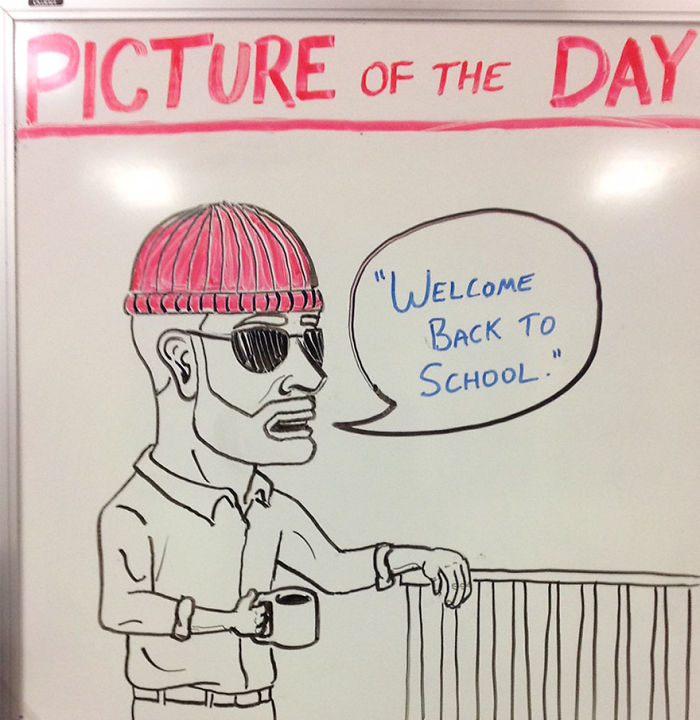 PICTURE OF THE DAY
"WELCOME
BACK TO
SCHOOL."